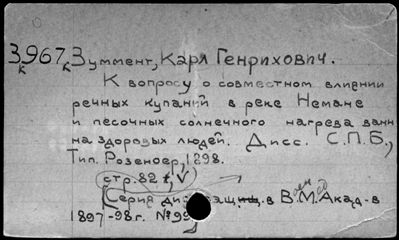 3967 Зуммент, Карл Генрихович.
к к
К вопросу о совместном влиянии
речных купаний в реке Немане
и песочных солнечного нагрева ванн
на здоровых людей. Дисс. С.П.Б.,
Тип. Розеноер, 1898.
стр. 82
(Серия в В.М. Акад. в
1897-98 г. № 99